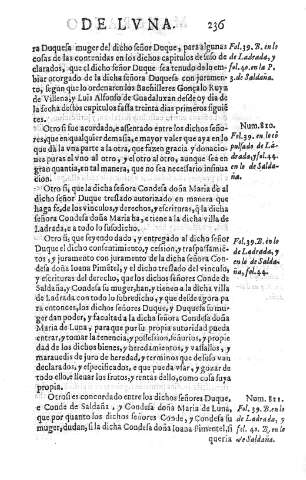 DE LVNA. 236
ra Duquesa muger del dicho señor Duque, para algunas
cosas de las contenidas en los dichos capitulos de suso de
clarados, que el dicho señor Duque sea tenudo de lo em-
biar otorgado de la dicha señora Duquesa con juramen-
to, segun que lo ordenaren los Bachilleres Gonçalo Ruyz
de Villena, y Luis Alfonso de Guadelaxara desde oy dia de
la fecha destos capitulos fasta treinta dias primeros siguiẽ
tes.
Otro si fue acordado, assentado entre los dichos seño-
res, que en qualquier demasia, e mayor valer que aya en lo
que dá la vna parte a la otra, que fazen gracia y donacio-
nes puras el vno al otro, y el otro al otro, aunque sea en
gran quantia, e en tal manera, que no sea necessario insinua
cion.
Otro si, que la dicha señora Condesa doña Maria dé al
dicho señor Duque treslado autorizado en manera que
haga fe, de los vinculos, y derechos, y escrituras, q̃ la dicha
señora Condesa doña Maria ha, e tiene a la dicha villa de
Ladrada, e a todo lo susodicho.
Otro si, que seyendo dado, y entregado al dicho señor
Duque el dicho consentimiento, y cession, y traspassamiẽ-
tos, y juramento con juramento de la dicha señora Con-
desa doña Ioana Pimẽtel, y el dicho treslado del vinculo,
y escrituras del derecho, que los dichos señores Conde de
Saldaña, y Condesa su muger, han, y tienen a la dicha villa
de Ladrada con todo lo sobredicho, y que desde agora pa
ra entonces, los dichos señores Duque, y Duquesa su mu-
ger dan poder, y facultad a la dicha señora Condesa doña
Maria de Luna, para que por su propia autoridad pueda
entrar, y tomar la tenencia, y possession, señorios, y propie
dad de los dichos bienes, y heredamientos, y vassallos, y
marauedis de juro de heredad, y terminos que de suso van
declarados, y especificados, e que pueda vsar, y gozar de
todo ello, e lleuar los frutos, y rentas dello, como cosa suya
propia.
Otro si es concordado entre los dichos señores Duque,
e Conde de Saldaña, y Condesa doña Maria de Luna,
que por quanto los dichos señores Conde, y Condesa su
muger, dudan, si la dicha Condesa doña Ioana Pimentel, si
queria
Fol. 39. B. en lo
de Ladrada, y
fol. 40. en la P.
3. de Saldaña.
Num. 820.
Fol. 39. en lo
de La-
drada, y fol. 44.
en lo de Salda-
ña.
Fol. 39. B. en lo
de Ladrada, y
en lo de Salda-
ña, fol. 44.
Num. 821.
Fol. 39. B. en lo
de Ladrada, y
fol. 42. B. en lo
de Saldaña.